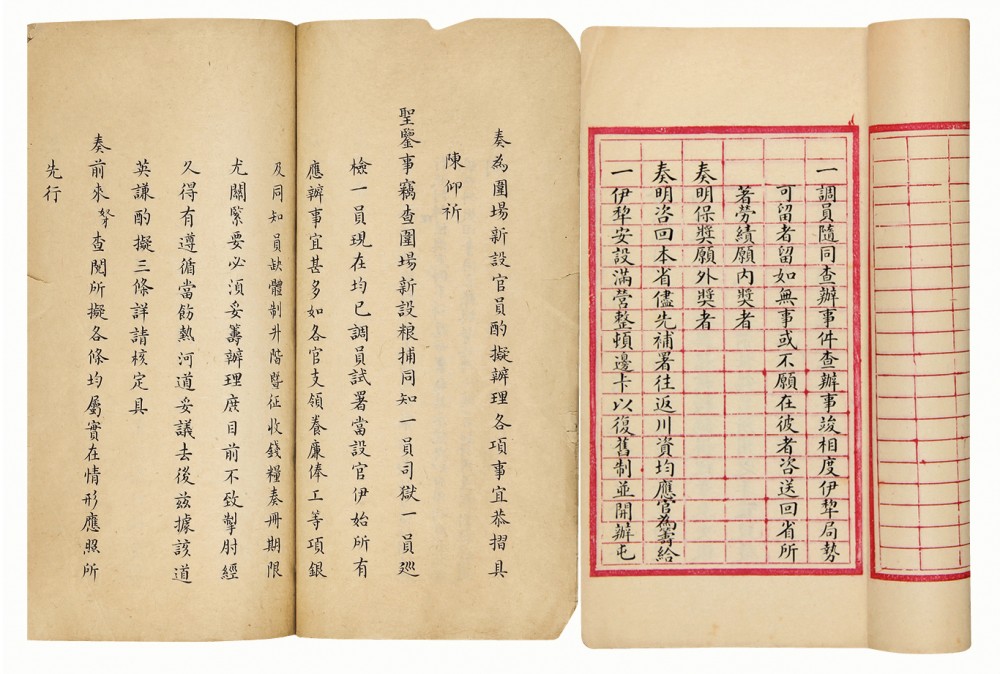 奏為圍場新設官員酌擬辦理各項事宜恭摺具
陳仰祈
聖鑒事竊查圍場新設粮捕同知一員司獄一員巡
檢一員現在均已調員試署當設官伊始所有
應辦事宜甚多如各官支領養廉俸工等項銀
及同知員缺體制升階暨征收錢糧奏冊期限
尤關緊要必須妥籌辦理庶目前不致掣肘經
久得有遵循當飭熱河道妥議去後茲據該道
英謙酌擬三條詳請核定具
奏前來奴才查閱所擬各條均屬實在情形應照所
先行
一調員隨同查辦事件查辦事竣相度伊犂局勢
可留者留如無事或不願在彼者咨送回省所
著勞績願內獎者
奏明保獎願外獎者
奏明咨回本省儘先補署往返川資均應官為籌給
一伊犂安設滿營整頓邊卡以復舊制並開辦屯